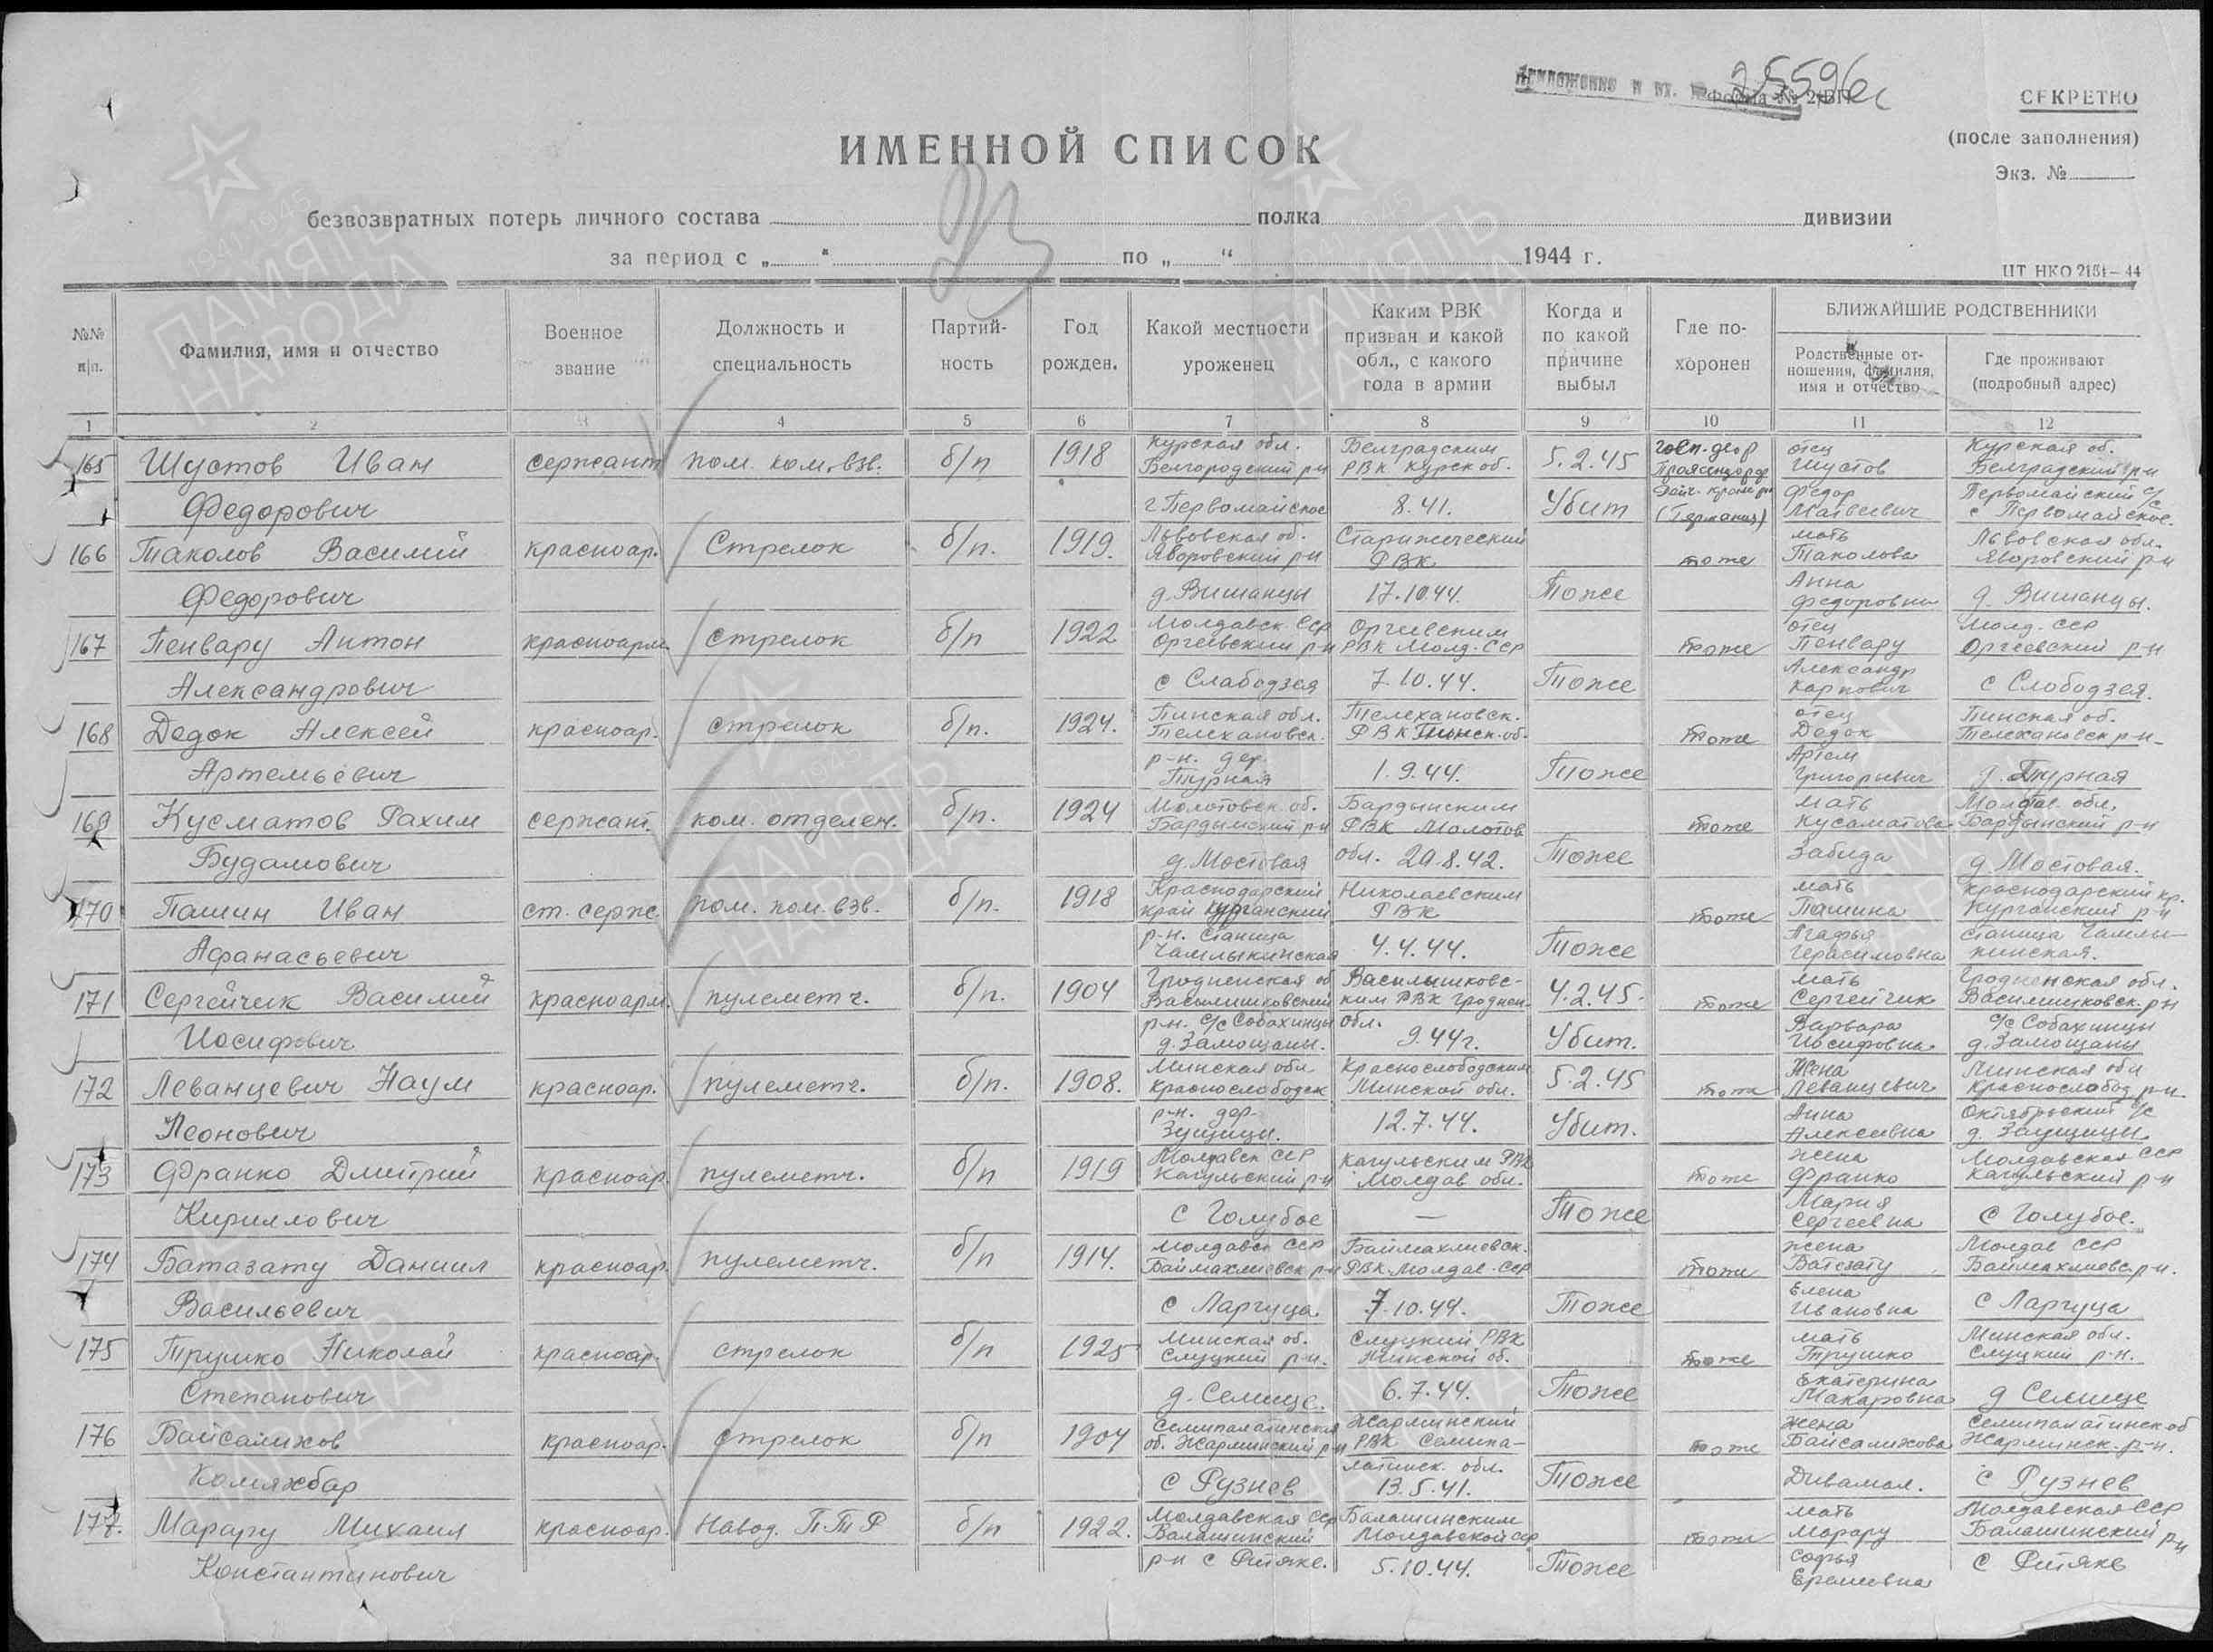 Приложение к вх. №
25596с
Форма № 2/БП
СЕКРЕТНО
(после заполнения)
Экз. №
ИМЕННОЙ СПИСОК
безвозвратных потерь личного состава полка дивизии
за период с „ “ по „ “ 1944 г.
ЦТ НКО 2151—44
№№ п/п.
Фамилия, имя и отчество
Военное звание
Должность и специальность
Партийность
Год рожден.
Какой местности уроженец
Каким РВК призван и какой обл., с какого года в армии
Когда и по какой причине выбыл
Где похоронен
БЛИЖАЙШИЕ РОДСТВЕННИКИ
Родственные отношения, фамилия, имя и отчество
Где проживают (подробный адрес)
1 2 3 4 5 6 7 8 9 10 11 12
165 Шустов Иван Федорович сержант пом. ком. взв. б/п 1918 Курская обл. Белгородский р-н г Первомайское Белградским РВК Курск об. 8.41. 5.2.45 Убит (Германия) отец Шустов Федор Матвеевич Курская об. Белградский р-н Первомайский с/с с Первомайское.
166 Таколов Василий Федорович красноар. Стрелок б/п. 1919. Львовская об. Яворовский р-н д. Вишанцы РВК 17.10.44. Тоже тоже мать Таколова Анна Федоровна Львовская обл. Яворовский р-н д. Вишанцы.
167 Пенвару Антон Александрович красноарм. стрелок б/п 1922 Молдавск ССР Оргеевский р-н с Слабодзея Оргеевским РВК Молд. ССР 7.10.44. Тоже тоже отец Пенвару Александр Карпович Молд. ССР Оргеевский р-н с Слободзея.
168 Дедок Алексей Артемьевич красноар. стрелок б/п. 1924. Пинская обл. Телехановск. р-н. дер. Турная Телехановск. РВК Пинск. об. 1.9.44. Тоже тоже отец Дедок Артем Григорьевич Пинская об. Телехановск р-н д. Турная
169 Кусматов Рахим Будамович сержант. ком. отделен. б/п. 1924 Молотовск. об. Бардымский р-н д. Мостовая Бардынским РВК Молотов обл. 29.8.42. Тоже тоже мать Кусаматова Забида Молотов. обл. Бардынский р-н д. Мостовая.
170 Пашин Иван Афанасьевич ст. серж. пом. ком. взв. б/п. 1918 Краснодарский край Курганский р-н. станица Чамлыкинская Николаевским РВК 4.4.44. Тоже тоже мать Пашина Агафья Герасимовна Краснодарский кр. Курганский р-н станица Чамлыкинская.
171 Сергейчик Василий Иосифович красноарм. пулеметч. б/п. 1904 Гродненская об Василишковский р-н. с/с Собакинцы д. Замощаны. Василишковским РВК Гроднен. обл. 9.44г. 4.2.45. Убит. тоже мать Сергейчик Варвара Иосифовна Гродненская обл. Василишковск. р-н с/с Собакинцы д. Замощаны
172 Леванцевич Наум Леонович красноар. пулеметч. б/п. 1908. Минская обл Краснослободск р-н. дер. Краснослободским Минской обл. 12.7.44. 5.2.45 Убит. тоже жена Леванцевич Анна Алексеевна Минская обл Краснослобод р-н. Октябрьский с/с д.
173 Франко Дмитрий Кириллович красноар пулеметч. б/п 1919 Молдавск ССР Кагульский р-н с Голубое Кагульским РВК Молдав обл. — Тоже тоже жена Франко Мария Сергеевна Молдавская ССР Кагульский р-н с Голубое.
174 Батазату Даниил Васильевич красноар. пулеметч. б/п 1914. Молдавск ССР Баймахлиевск р-н с Ларгуца Баймахлиевск. РВК Молдав. ССР 7.10.44. Тоже тоже жена Елена Ивановна Молдав ССР Баймахлиевс р-н. с Ларгуца
175 Трушко Николай Степанович красноар. стрелок б/п 1925 Минская об. Слуцкий р-н. д. Селище. Слуцкий РВК Минской об. 6.7.44. Тоже тоже мать Трушко Екатерина Макаровна Минская обл. Слуцкий р-н. д Селище
176 Байсалихов Комяжбар красноар. стрелок б/п 1904 Семипалатинская об. Жарминский р-н с Рузнев Жарминский РВК Семипалатинск. обл. 13.5.41. Тоже тоже жена Байсалихова Дивамал. Семипалатинск об Жарминск. р-н. с Рузнев
177. Марару Михаил Константинович красноар. Навод. ПТР б/п 1922. Молдавская ССР Балашинский р-н с Рытяке. Балашинским Молдавской ССР 5.10.44. Тоже тоже мать Марару Софья Еремеевна Молдавская ССР Балашинский р-н с Рытяке
1941-1945
ПАМЯТЬ
НАРОДА